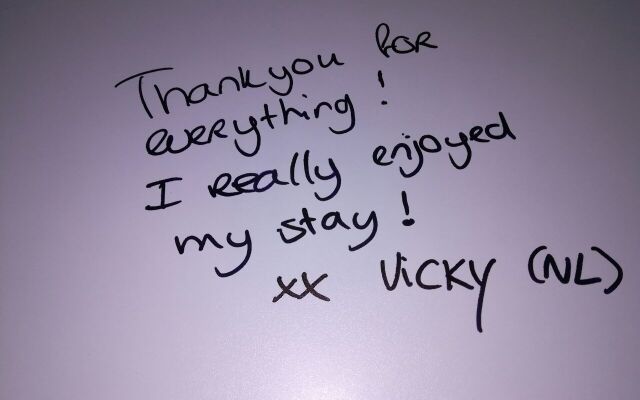 Thankyou for
everything!
I really enjoyed
my stay!
xx Vicky (NL)